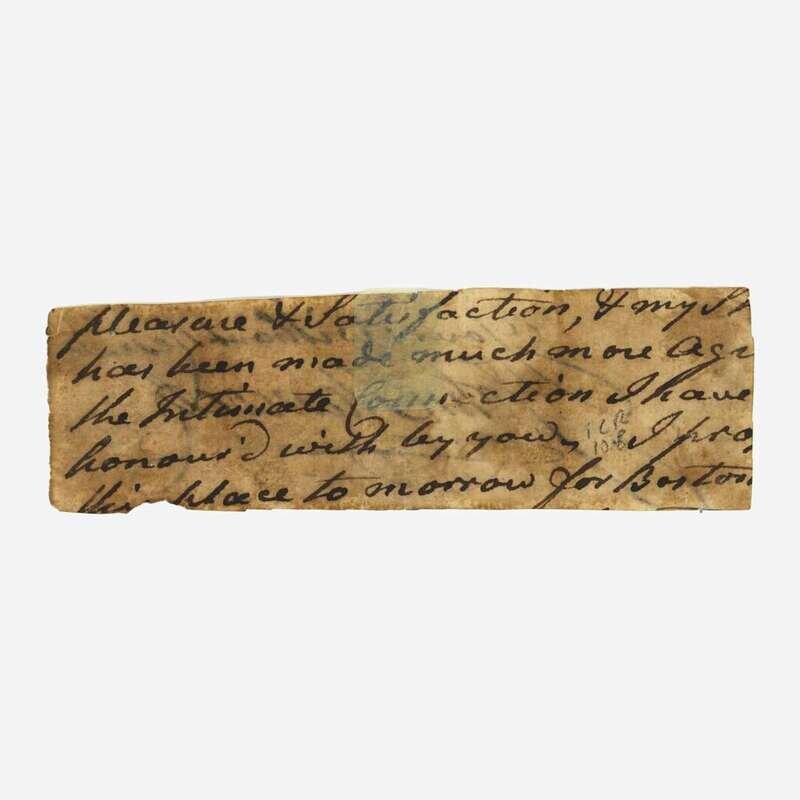 pleasure & Satisfaction, & my
has been made much more Agr
the Intimate Connection I have
honour'd with by you, I pro
this place to morrow for Boston